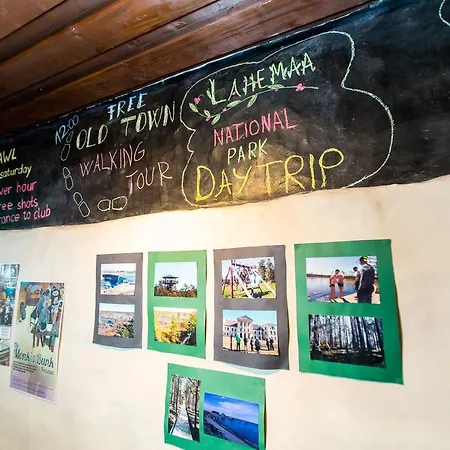 AWL
saturday
wer hour
ree shots
rance to club
12:00 FREE
OLD TOWN
WALKING
TOUR
LAHEMAA
NATIONAL
PARK
DAYTRIP
The
Monk's Bunk